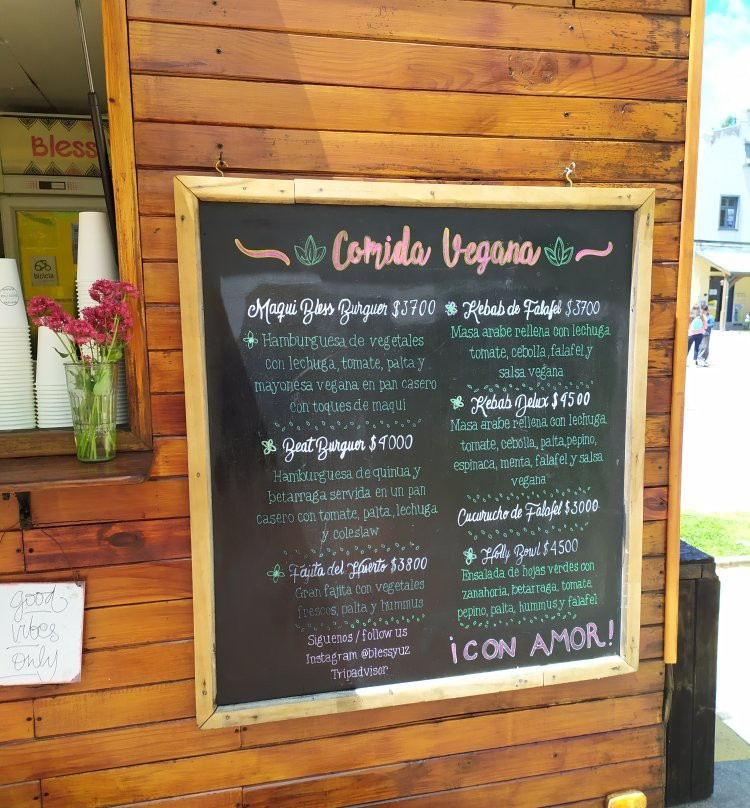 Bless
bicicla
Comida Vegana
Maqui Bless Burguer $3700
Hamburguesa de vegetales
con lechuga, tomate, palta y
mayonesa vegana en pan casero
con toques de maqui
Beat Burguer $4000
Hamburguesa de quinua y
betarraga servida en un pan
casero con tomate, palta, lechuga
y coleslaw
Fajita del Huerto $3800
Gran fajita con vegetales
frescos, palta y hummus
Siguenos / follow us
Instagram @blessyuz
Tripadvisor
Kebab de Falafel $3700
Masa arabe rellena con lechuga,
tomate, cebolla, falafel y
salsa vegana
Kebab Delux $4500
Masa arabe rellena con lechuga,
tomate, cebolla, palta, pepino,
espinaca, menta, falafel y salsa
vegana
Cucurucho de Falafel $3000
Holly Bowl $4500
Ensalada de hojas verdes con
zanahoria, betarraga, tomate
pepino, palta, hummus y falafel
¡CON AMOR!
good
vibes
only